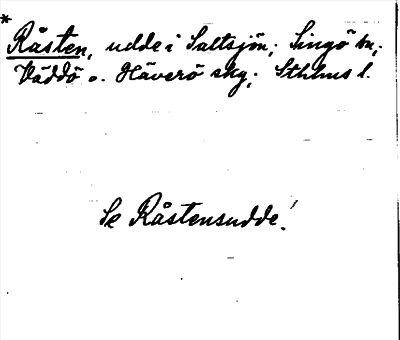 *
Råsten, udde i Saltsjön; Singö sn,;
Väddö o. Häverö skg; Sthlms l.
Se Råstensudde!